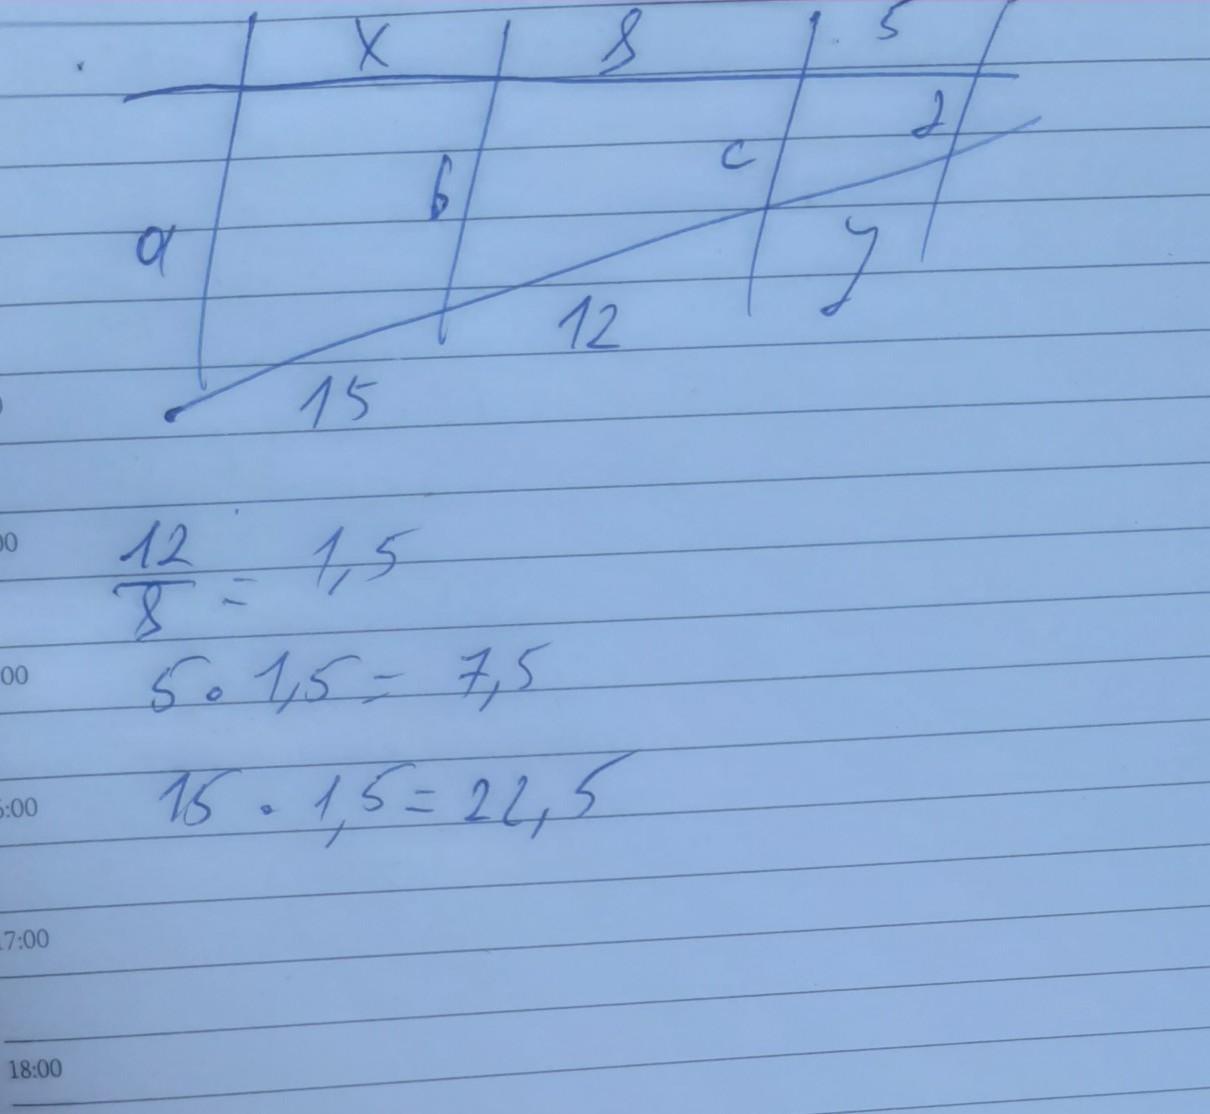 x 8 5
a b c d
y
12
15
12/8 = 1,5
5 · 1,5 = 7,5
15 · 1,5 = 22,5
17:00
18:00